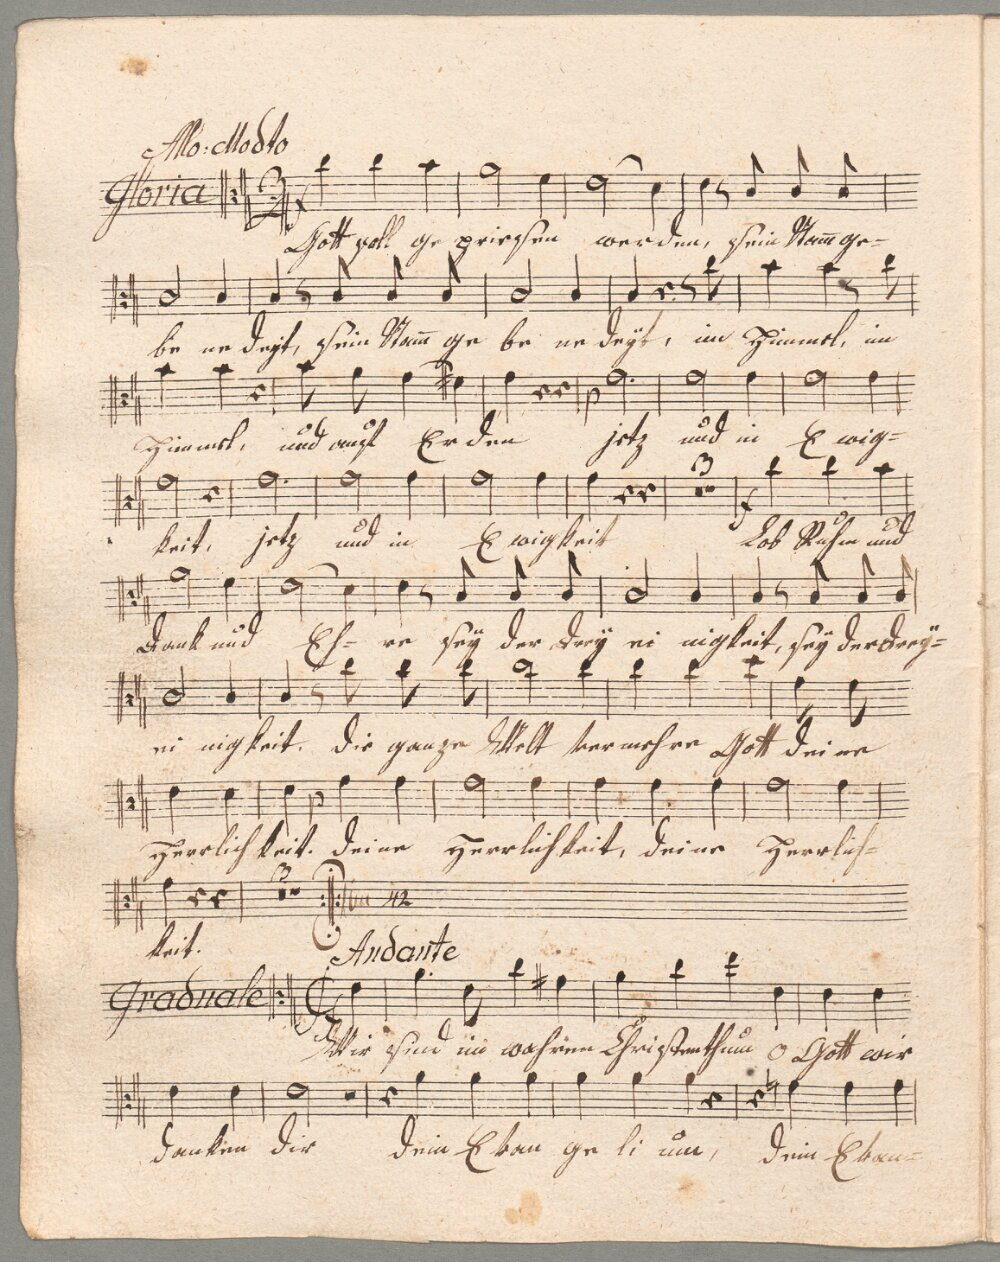 Allo: Modto
Gloria
Gott soll gepriesen werden, sein Nam̄ ge-
be ne deyt, sein Nam̄ ge be ne deyt, im Himmel, im
Himmel, und auf Erden jetz und in Ewig-
keit, jetz und in Ewigkeit 3 Lob Ruhm und
Dank und Eh- re sey der Drey ei nigkeit, sey der Drey-
ei nigkeit. die ganze Welt vermehre Gott deine
Herrlichkeit. deine Herrlichkeit, deine Herrlich-
3 42
keit.
Andante
Graduale
Wir sind im wahren Christenthum o Gott wir
danken dir dein Evan ge li um, dein Evan-